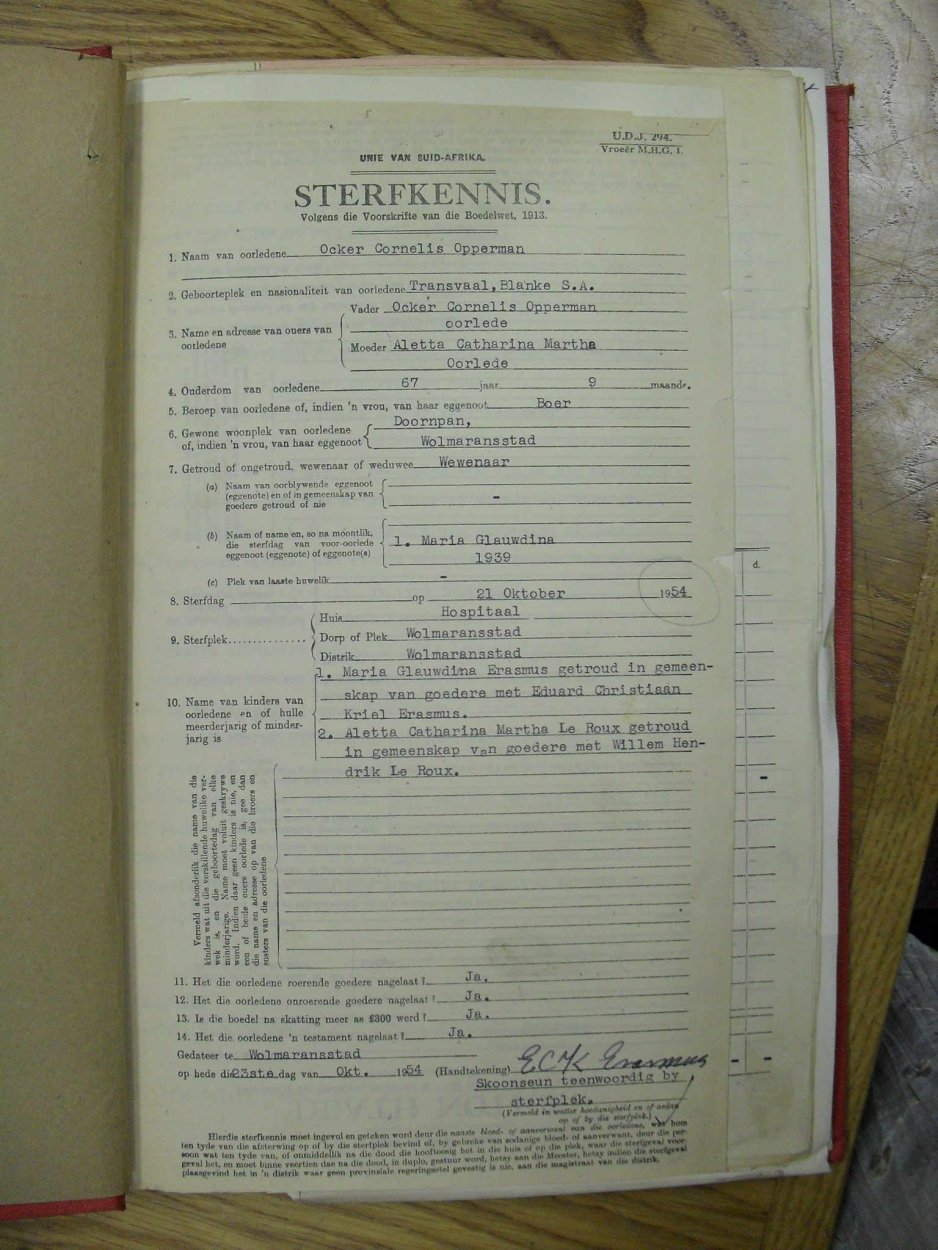 U.D.J. 294.
Vroeër M.H.G. 1.
UNIE VAN SUID-AFRIKA.
STERFKENNIS.
Volgens die Voorskrifte van die Boedelwet, 1913.
1. Naam van oorledene Ocker Cornelis Opperman
2. Geboorteplek en nasionaliteit van oorledene Transvaal, Blanke S.A.
3. Name en adresse van ouers van oorledene
Vader Ocker Cornelis Opperman
oorlede
Moeder Aletta Catharina Martha
Oorlede
4. Ouderdom van oorledene 67 jaar 9 maande.
5. Beroep van oorledene of, indien 'n vrou, van haar eggenoot Boer
6. Gewone woonplek van oorledene of, indien 'n vrou, van haar eggenoot
Doornpan,
Wolmaransstad
7. Getroud of ongetroud, wewenaar of weduwee Wewenaar
(a) Naam van oorblywende eggenoot
(eggenote) en of in gemeenskap van
goedere getroud of nie -
(b) Naam of name en, so na moontlik,
die sterfdag van voor-oorlede
eggenoot (eggenote) of eggenote(s)
1. Maria Glauwdina
1939
(c) Plek van laaste huwelik -
8. Sterfdag op 21 Oktober 1954
9. Sterfplek
Huis Hospitaal
Dorp of Plek Wolmaransstad
Distrik Wolmaransstad
10. Name van kinders van
oorledene en of hulle
meerderjarig of minder-
jarig is
1. Maria Glauwdina Erasmus getroud in gemeen-
skap van goedere met Eduard Christiaan
Kriel Erasmus.
2. Aletta Catharina Martha Le Roux getroud
in gemeenskap van goedere met Willem Hen-
drik Le Roux.
Vermeld afsonderlik die name van die
kinders wat uit die verskillende huwelike ver-
wek is, en die geboortedag van elke
minderjarige. Name moet voluit geskrywe
word. Indien daar geen kinders is nie, en
een of beide ouers oorlede is, gee dan
die name en adresse op van die broers en
susters van die oorledene
11. Het die oorledene roerende goedere nagelaat? Ja.
12. Het die oorledene onroerende goedere nagelaat? Ja.
13. Is die boedel na skatting meer as £300 werd? Ja.
14. Het die oorledene 'n testament nagelaat? Ja.
Gedateer te Wolmaransstad
op hede die 23ste dag van Okt. 1954 (Handtekening) E C K Erasmus
Skoonseun teenwoordig by
sterfplek.
(Vermeld in watter hoedanigheid en of anders
op of by die sterfplek.)
Hierdie sterfkennis moet ingevul en geteken word deur die naaste bloed- of aanverwant van die oorledene, wat hom
ten tyde van die afsterwing op of by die sterfplek bevind of, by gebreke van sodanige bloed- of aanverwant, deur die per-
soon wat ten tyde van, of onmiddellik na die dood die hooftoosig het in die huis of op die plek, waar die sterfgeval voor-
geval het, en moet binne veertien dae na die dood, in duplo, gestuur word, hetsy aan die Meester, hetsy indien die sterfgeval
plaasgevind het in 'n distrik waar geen provinsiale regeringsetel gevestig is nie, aan die magistraat van die distrik.
d.